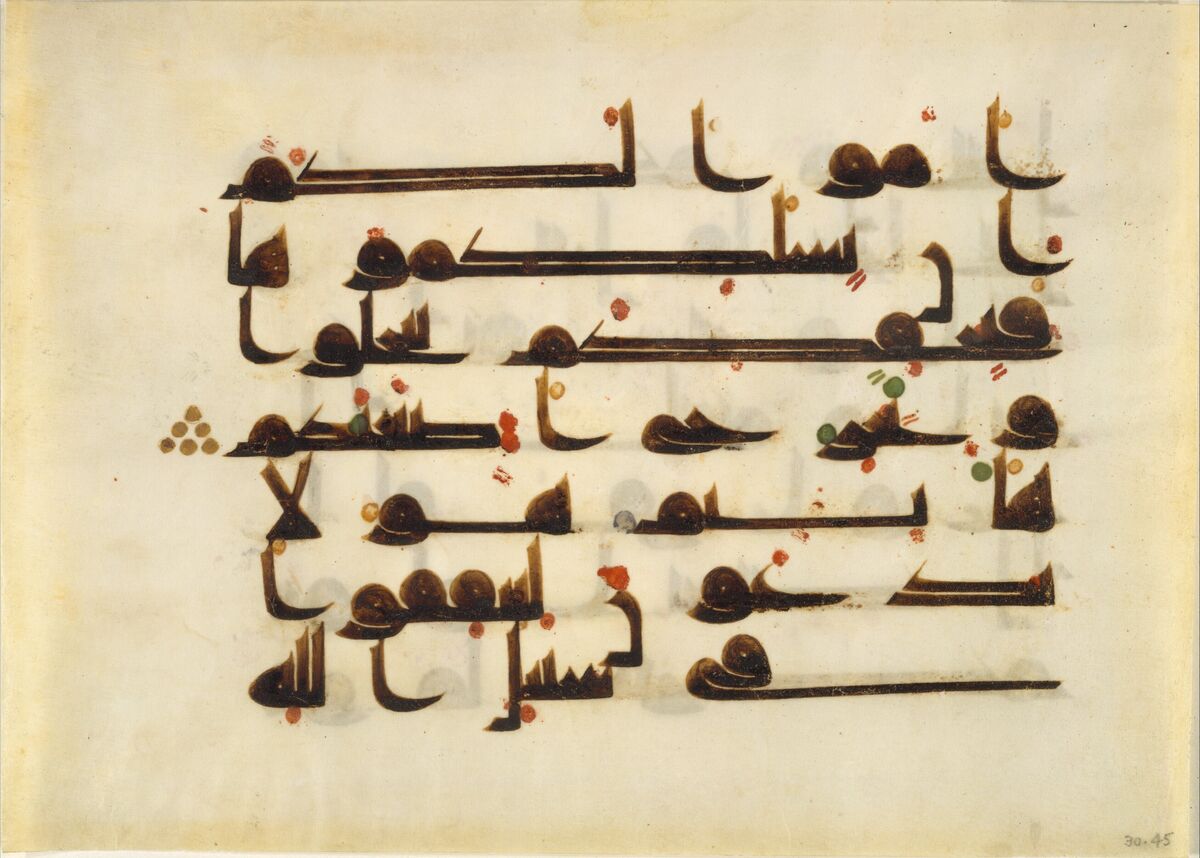 اموالكم
ان يسلكموها
فيحفكم تبخلوا
و يخرج اضغنكم
هانتم هولا
تدعون لتنفقوا
في سبيل الله
30.45